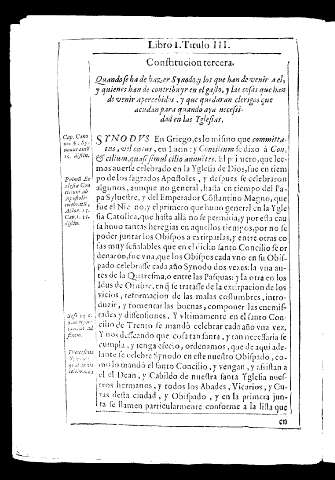 Libro I. Titulo III.
Constitucion tercera.
Quando se ha de hazer Synodo, y los que han de venir a el,
y quienes han de contribuyr en el gasto, y las cosas que han
de venir apercebidos, y que quedaran clerigos que
acudan para quando aya necessi-
dad en las Yglesias.
SYNODVS En Griego, es lo mismo que
en Latin; y Concilium se dixo à Con,
cilium, quasi simul
mos auerse celebrado en la Yglesia de Dios, fue en tiem
po de los sagrados Apostoles, y despues se celebraron
algunos, aunque no general, hasta en tiempo del Pa
pa Syluestre, y del Emperador Costantino Magno, que
fue el Niceno, y el primero que huuo general en la Ygle
sia Catolica, que hasta allà no se permitia, y por esta cau
sa huuo tantas heregias en aquellos tiempos, por no se
poder juntar los Obispos a extirparlas, y entre otras co
sas muy señaladas que en el dicho santo Concilio se or
denaron, fue vna, que los Obispos cada vno en su Obis-
pado celebrasse cada año Synodo dos vezes: la vna an-
tes de la Quaresma, o entre las Pasquas: y la otra en los
Idus de Otubre, en q̃ se tratasse de la extirpacion de los
vicios, reformacion de las malas costumbres, intro-
duzir, y fomentar las buenas, componer las enemis-
tades y dissensiones. Y vltimamente en el santo Con-
cilio de Trento se mandò celebrar cada año vna vez.
Y nos desseando que cosa tan santa, y tan necessaria se
cumpla, y tenga efecto, ordenamos, que de aqui ade-
lante se celebre Synodo en este nuestro Obispado, co-
mo lo mandò el santo Concilio, y vengan, y assistan a
el el Dean, y Cabildo de nuestra santa Yglesia nues-
tros hermanos, y todos los Abades, Vicarios, y Cu-
ras desta ciudad, y Obispado, y en la primera jun-
ta se llamen particularmente conforme a la lista que